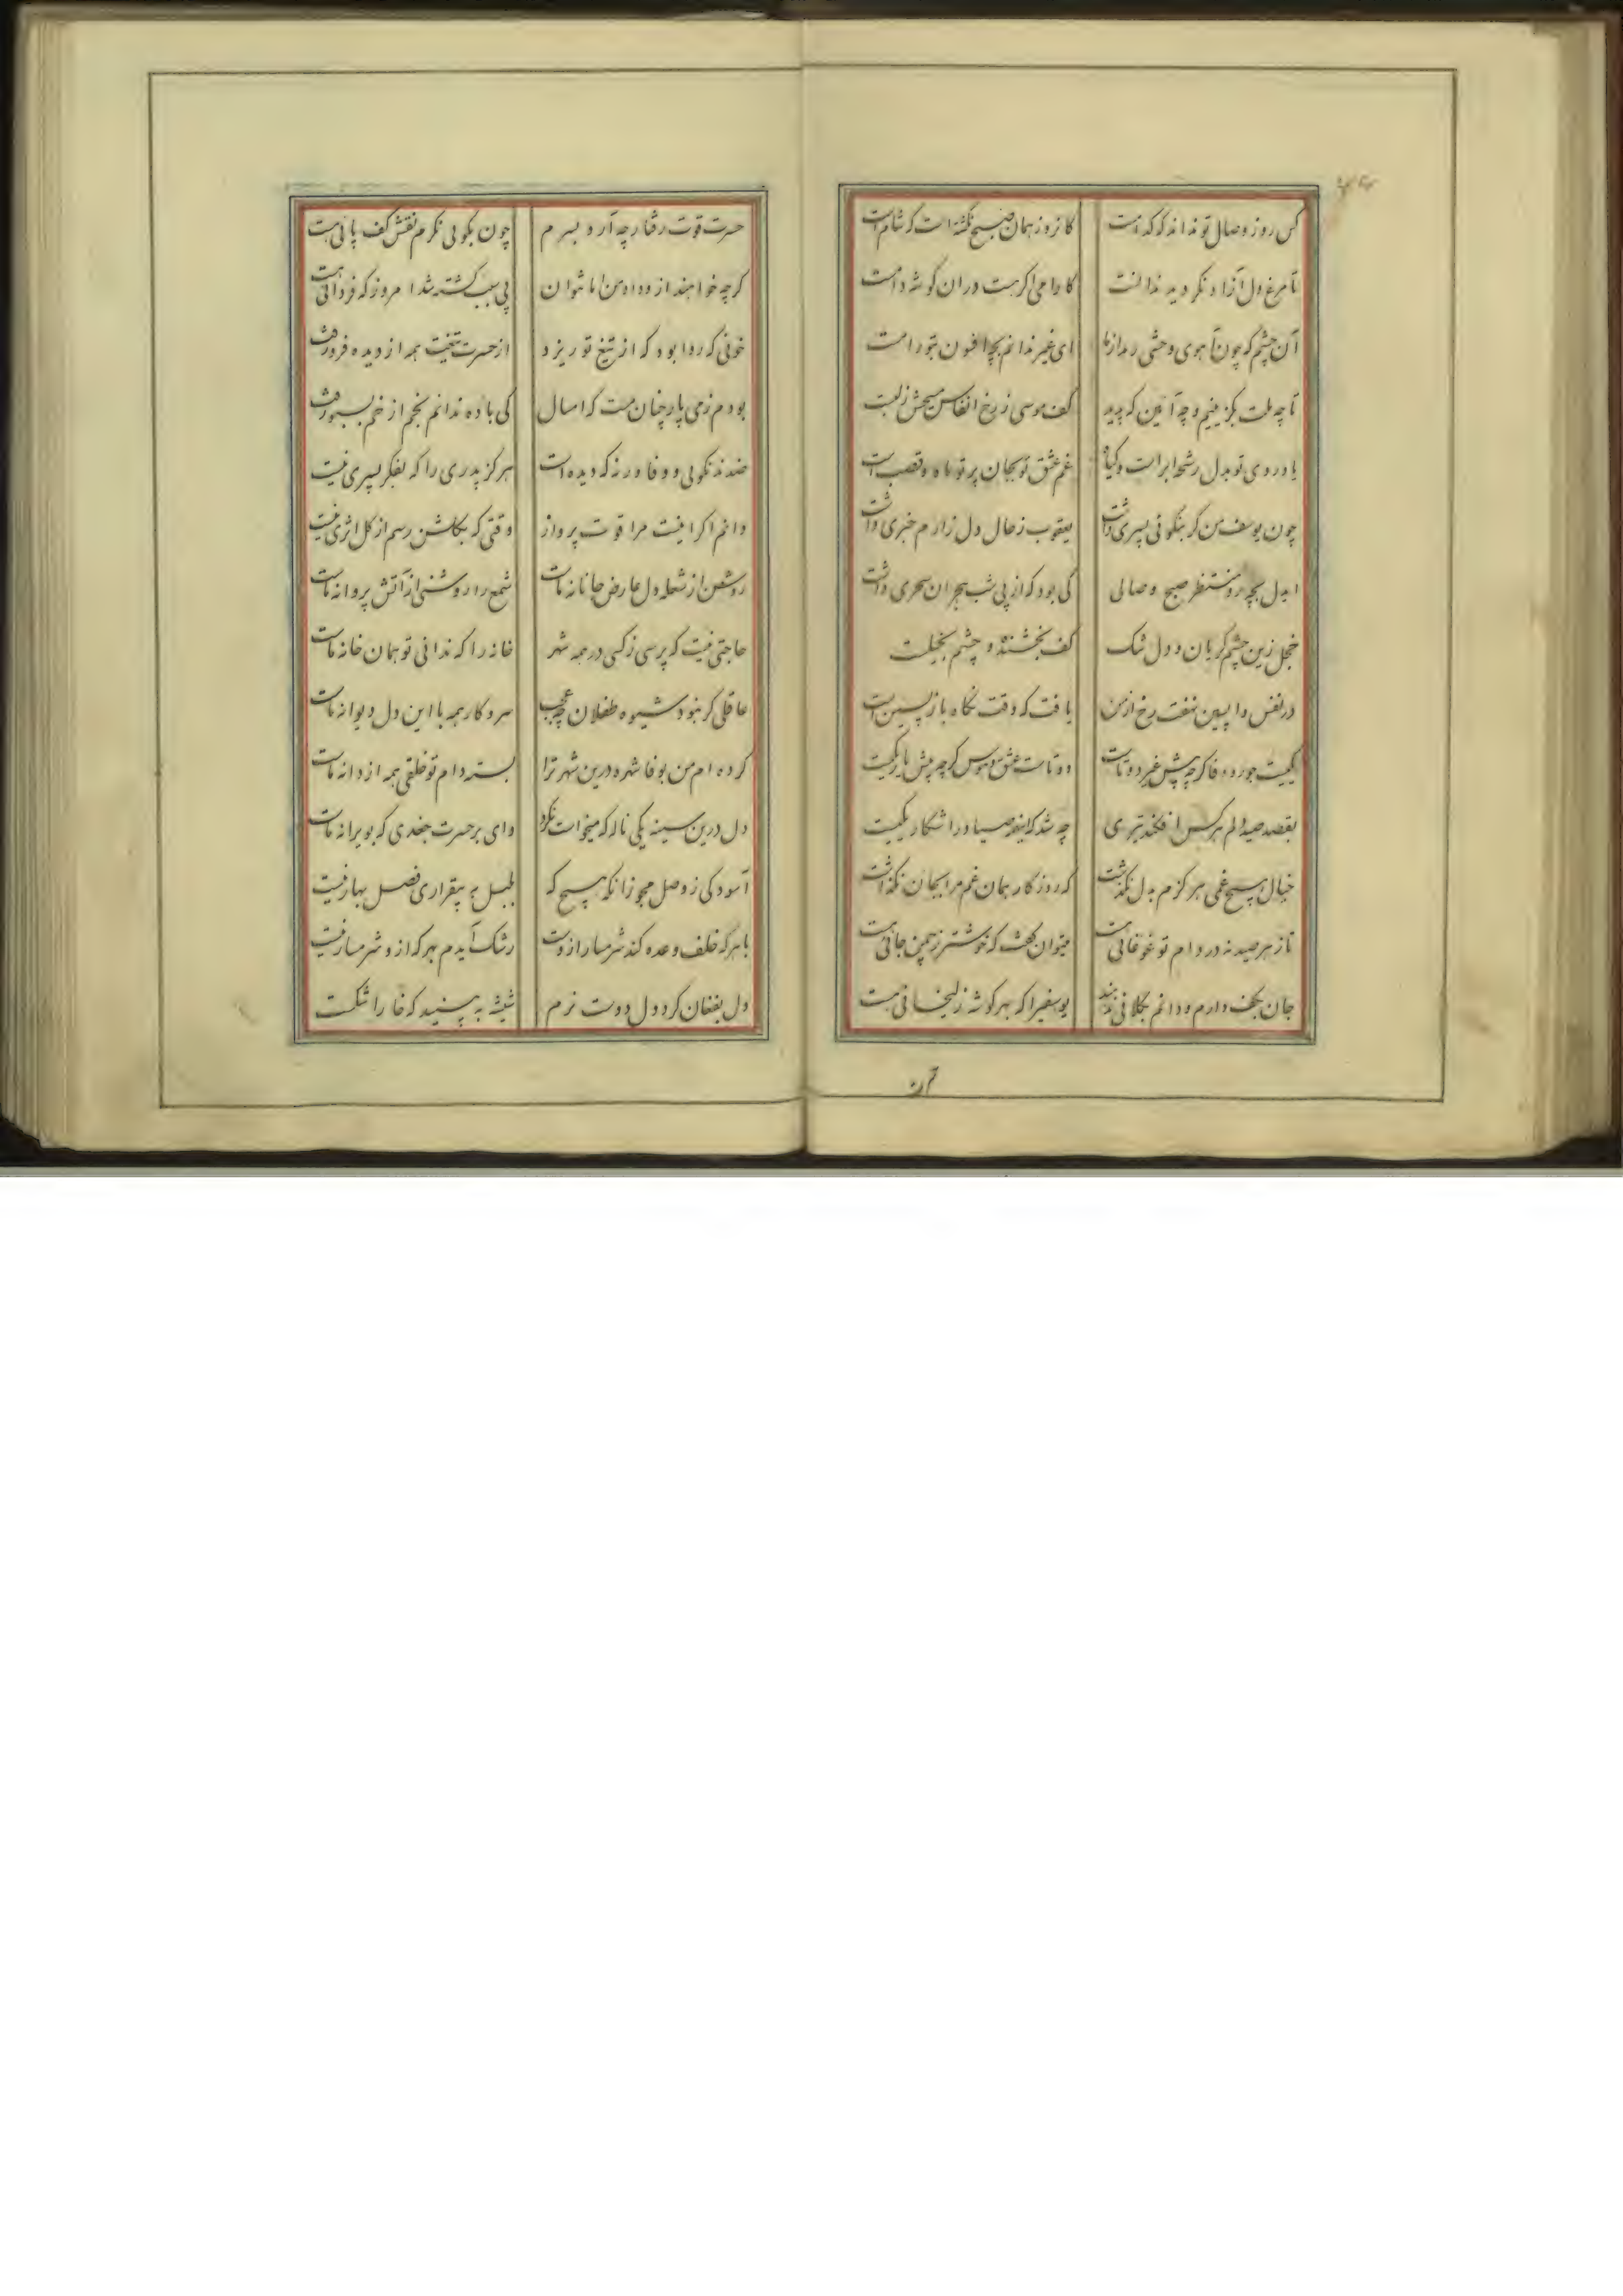 کس روز وصال تو نداند که کدامست کانروز همان صبح نگشته است که شامست
تا مرغ دل آزاد نگردید ندانست کارامی اگر هست در ان گوشه دامست
آن چشم که چون آهوی وحشی رمد از ما ای غیر ندانم بچه افسون بتو رامست
تا چه ملت بگزینیم و چه آئین که پدید کف موسی ز رخ انفاس مسیحش ز لبست
یاد روی تو بدل رشحه ابر است و گیاه غم عشق تو بجان پرتو ماه و قصب است
چون یوسف من گر بنکوئی پسری داشت یعقوب ز حال دل زارم خبری داشت
ایدل بچه رو منتظر صبح وصالی کی بود که از پی شب هجران سحری داشت
خجل زین چشم گریان و دل تنگ کف بخشنده و چشم بخیلست
در نفس واپسین نهفت رخ از من یافت که وقت نگاه بازپسین است
یکیست جور و وفا گرچه پیش غیر دوتاست دوتاست عشق و هوس گرچه پیش یار یکیست
بقصد صید دلم هر کس افکند تیری چه شد که اینهمه صیاد را شکار یکیست
خیال هیچ غمی هرگزم بدل نگذشت که روزگار همان غم مرا بجان نگذاشت
تا ز هر صید نه در دام تو غوغائی هست میتوان گفت که خوشتر ز چمن جائی هست
جان بکف دارم و دانم بکلافی ندهند یوسفیرا که بهر گوشه زلیخائی هست
حسرت قوت رفتار چه آرد بسرم چون بکوئی نگرم نقش کف پائی هست
گرچه خواهند ازو داد من اما نتوان پی سبب کشته شد امروز که فردائی هست
خونی که روا بود که از تیغ تو ریزد از حسرت تیغت همه از دیده فرو رفت
بودم ز می پار چنان مست که امسال کی باده ندانم بخم از خم بسبو رفت
ضدند نکوئی و وفا ورنه که دیده است هرگز پدری را که بفکر پسری نیست
دانم اگر نیست مرا قوت پرواز وقتی که بگلشن رسم از گل اثری نیست
روشن از شعله دل عارض جانانه ماست شمع را روشنی از آتش پروانه ماست
حاجتی نیست که پرسی ز کسی در همه شهر خانه را که ندانی تو همان خانه ماست
عاقلی گر نبود شیوه طفلان چه عجب سر و کار همه با این دل دیوانه ماست
کرده ام من بوفا شهره درین شهر ترا بسته دام تو خلقی همه از دانه ماست
دل درین سینه یکی ناله که میخواست نکرد وای بر حسرت جغدی که بویرانه ماست
آسودگی ز وصل مجو زانکه هیچ که بلبل به بیقراری فصل بهار نیست
با هر که خلف وعده کند شرمسار ازوست رشک آیدم بهر که ازو شرمسار نیست
دل بفغان کرد دل دوست نرم شیشه ببینید که خارا شکست